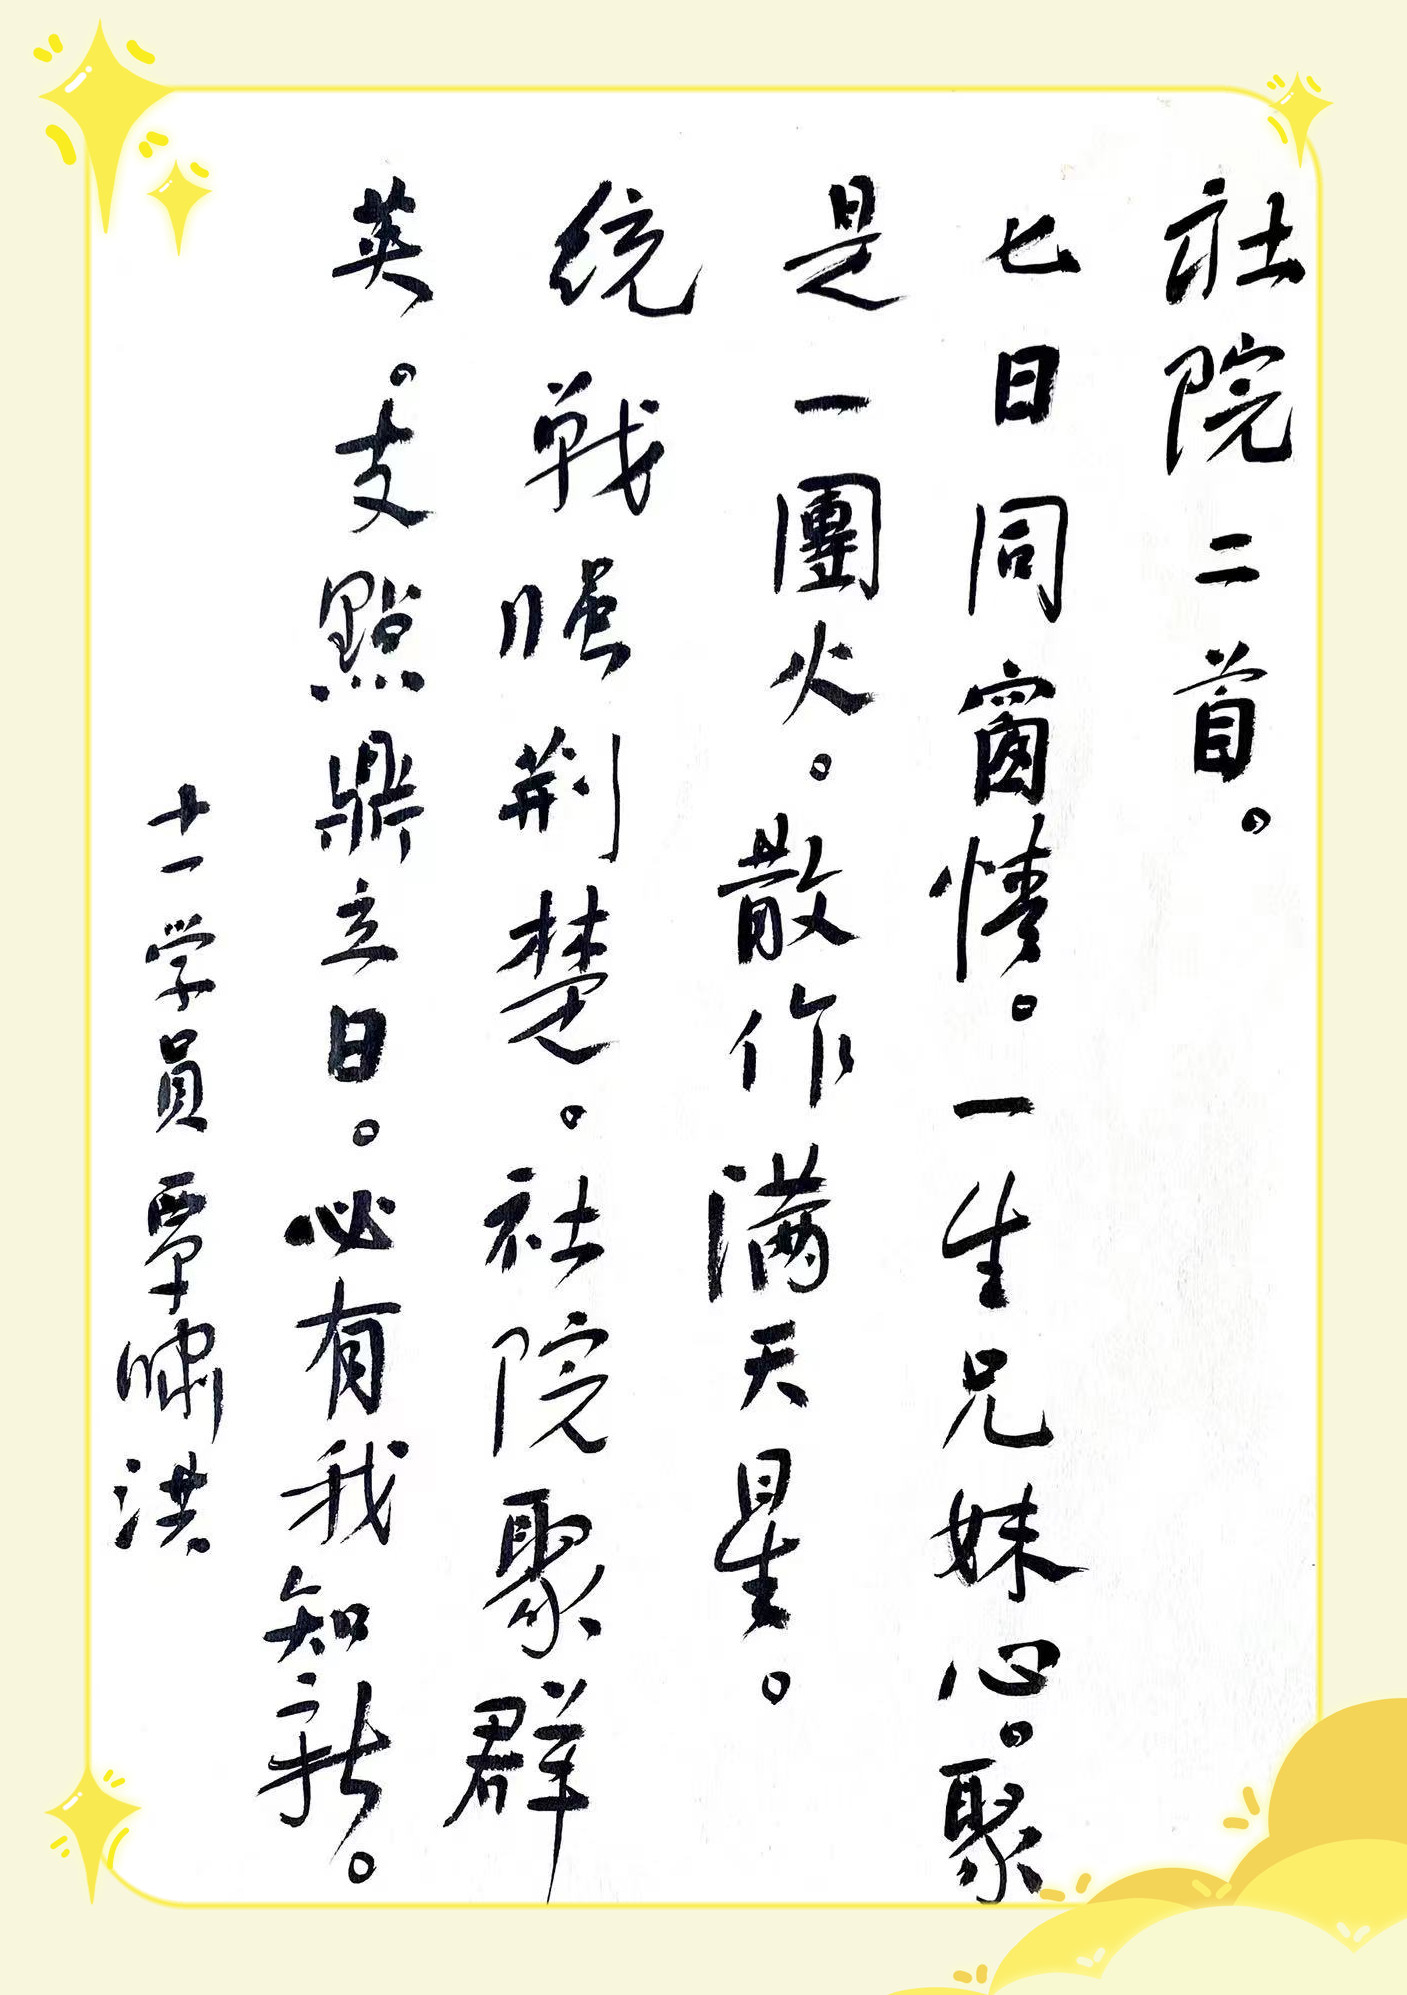 社院二首。
七日同窗情。一生兄妹心。聚
是一團火。散作满天星。
统戦荆楚。社院聚群
英。支點鼎立日。必有我知新。
十一学員覃嘯洪